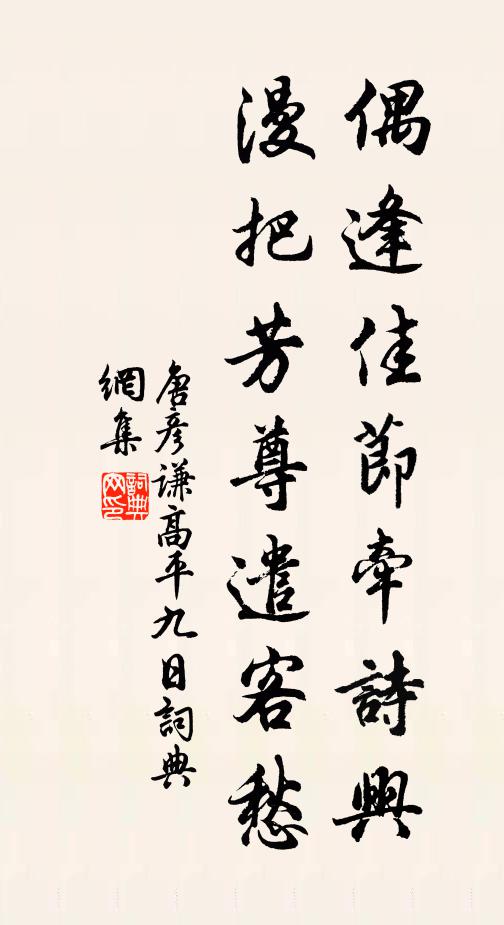 偶逢佳節牽詩興
漫把芳尊遣客愁
唐彥謙高平九日詞典
網集
詞典
網印